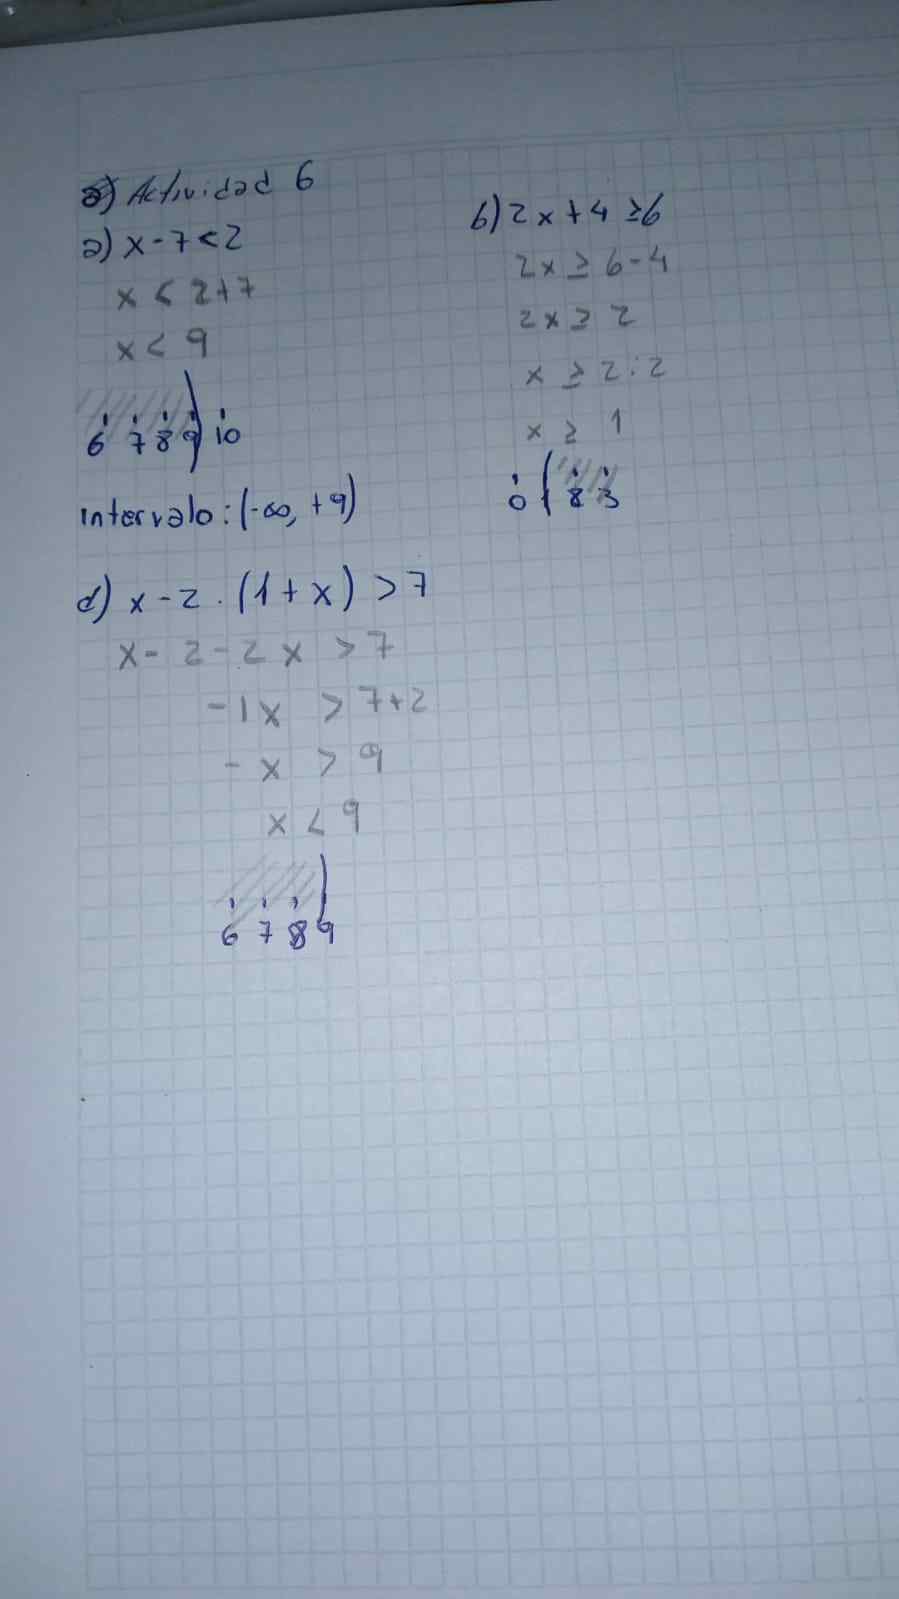 Actividad 6
a) x - 7 < 2
x < 2+7
x < 9
6 7 8 9) 10
intervalo: (-∞, +9)
b) 2x + 4 ≥ 6
2x ≥ 6-4
2x ≥ 2
x ≥ 2:2
x ≥ 1
0 ( 2 3
d) x - 2 . (1 + x) > 7
x - 2 - 2x > 7
-1x > 7+2
-x > 9
x < 9
6 7 8 9